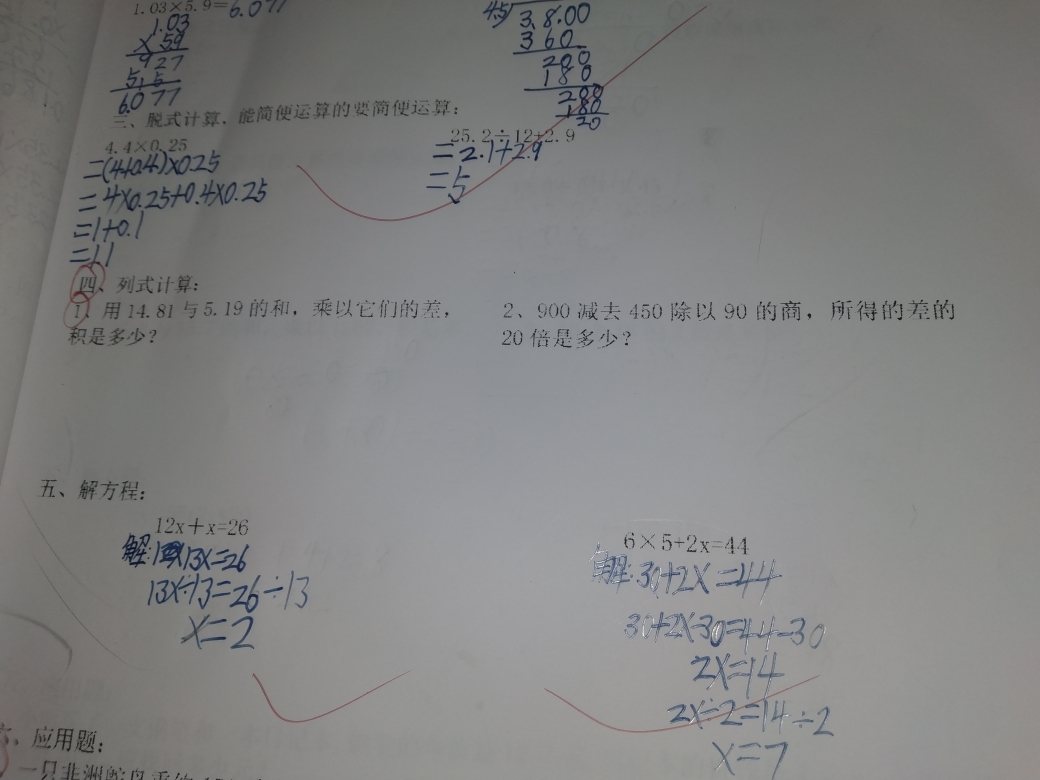 1.03×5.9=6.077
1.03
× 59
927
515
6.077
45 3.8.00
360
200
180
200
180
20
三、脱式计算，能简便运算的要简便运算：
4.4×0.25
=(4+0.4)×0.25
=4×0.25+0.4×0.25
=1+0.1
=1.1
25.2÷12+2.9
=2.1+2.9
=5
四、列式计算：
1、用14.81与5.19的和，乘以它们的差，
积是多少？
2、900减去450除以90的商，所得的差的
20倍是多少？
五、解方程：
12x+x=26
解:13x=26
13x÷13=26÷13
x=2
6×5+2x=44
解:30+2x=44
30+2x-30=44-30
2x=14
2x÷2=14÷2
x=7
六、应用题：
一只非洲鸵鸟重约